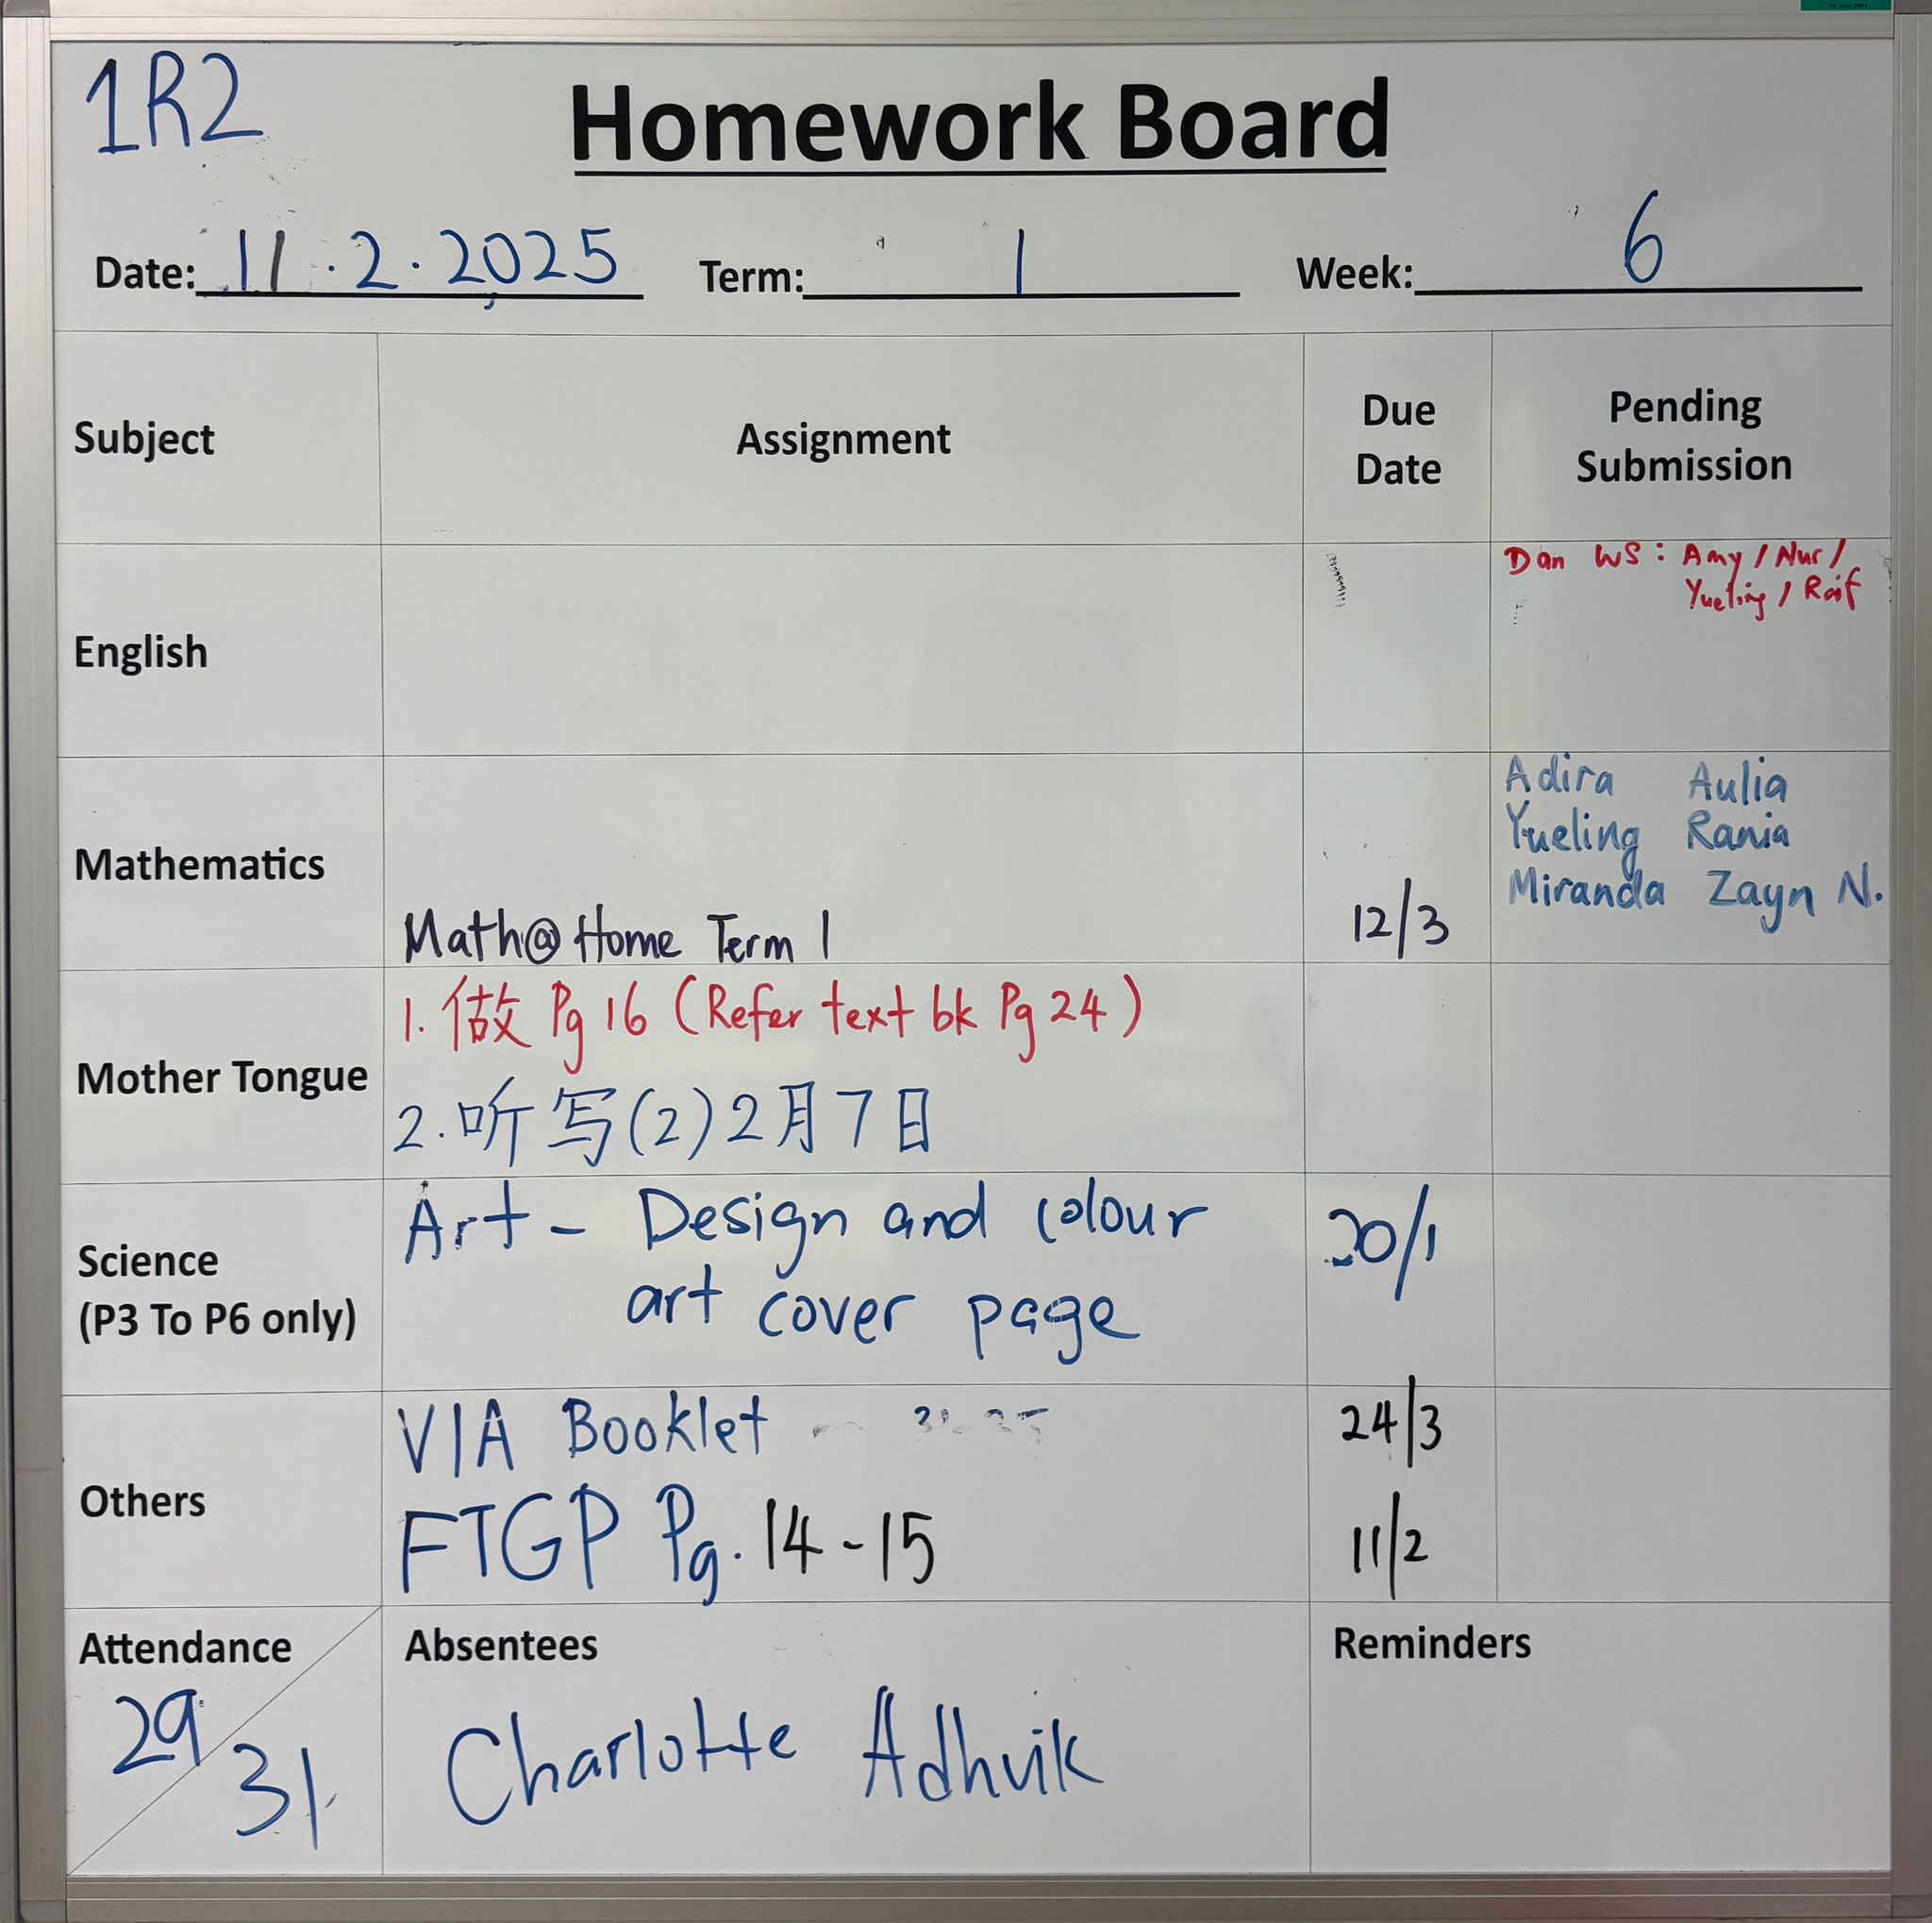 1R2
Homework Board
Date: 11.2.2025 Term: 1 Week: 6
Subject Assignment Due Date Pending Submission
English
Dan WS: Amy / Nur /
Yueling / Raif
Mathematics
Math@Home Term 1 12/3
Adira Aulia
Yueling Rania
Miranda Zayn N.
Mother Tongue
1. 做 Pg 16 (Refer text bk Pg 24)
2. 听写(2) 2月7日
Science
(P3 To P6 only)
Art - Design and colour
art cover page
20/1
Others
VIA Booklet 24/3
FTGP Pg. 14-15 11/2
Attendance
29/31
Absentees
Charlotte Adhvik
Reminders